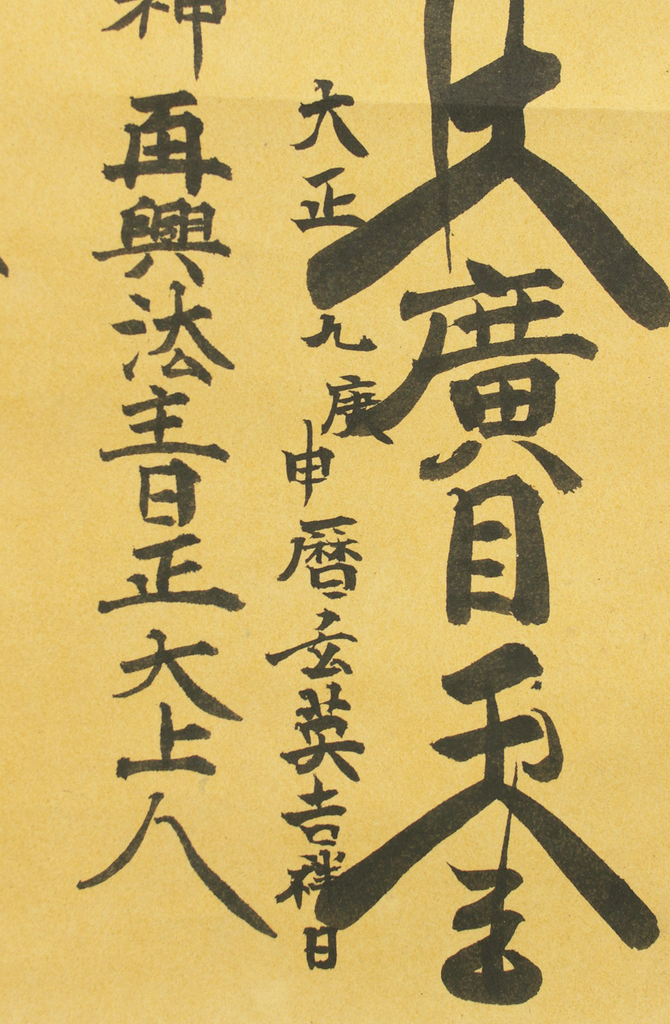 大廣目天王
大正九庚申暦玄英吉祥日
神再興法主日正大上人